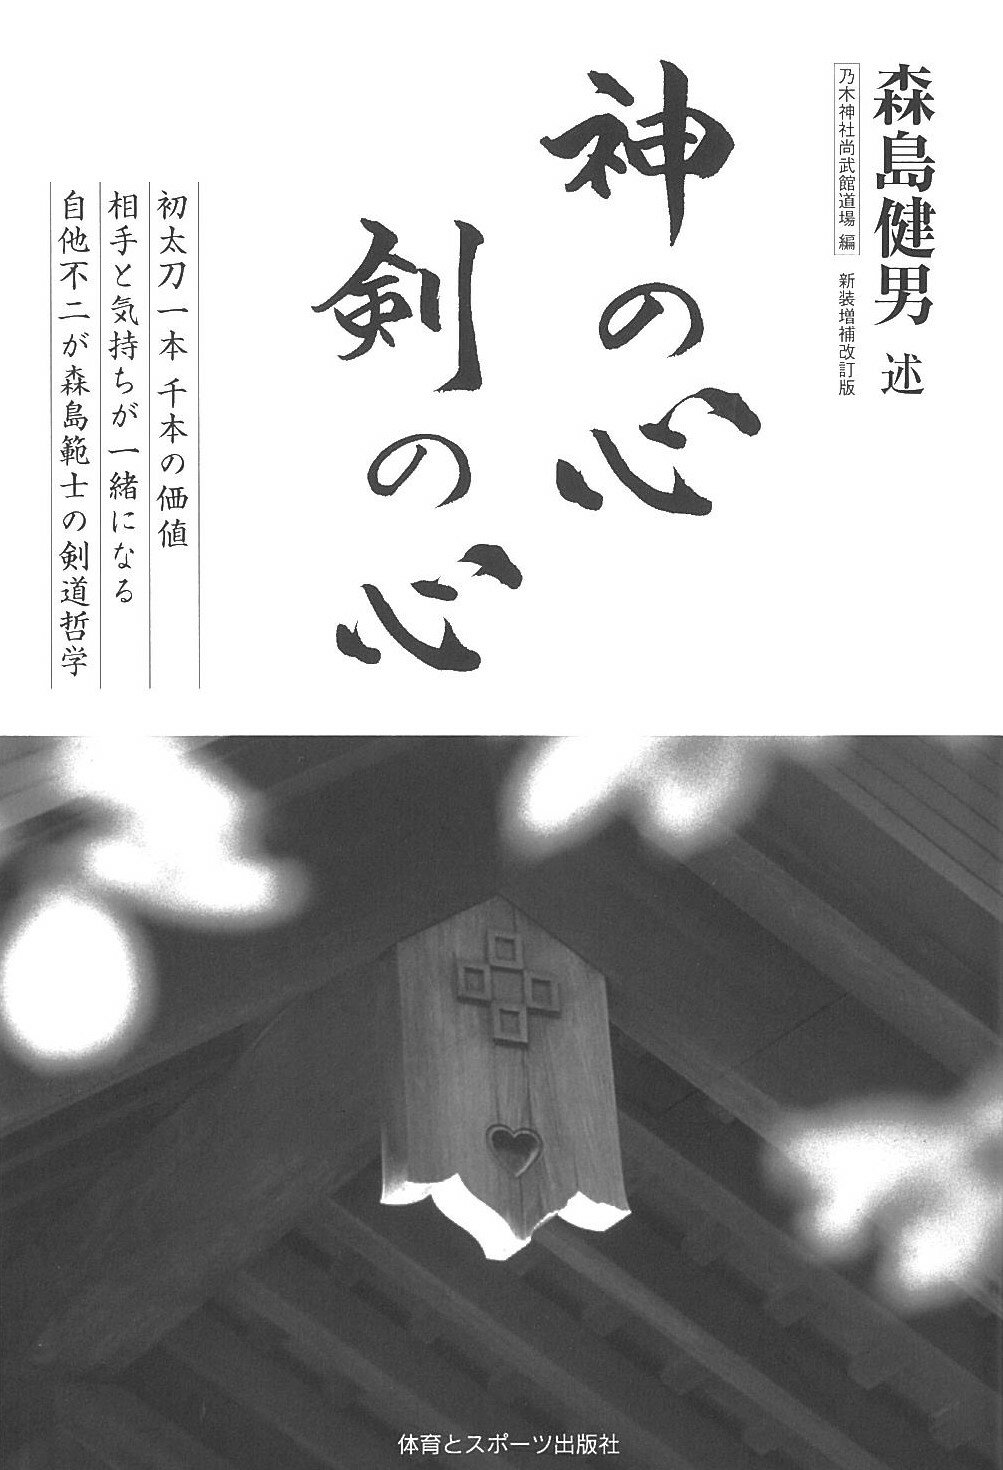 森島健男 述
乃木神社尚武館道場 編 新装増補改訂版
神の心
剣の心
初太刀一本 千本の価値
相手と気持ちが一緒になる
自他不二が森島範士の剣道哲学
体育とスポーツ出版社